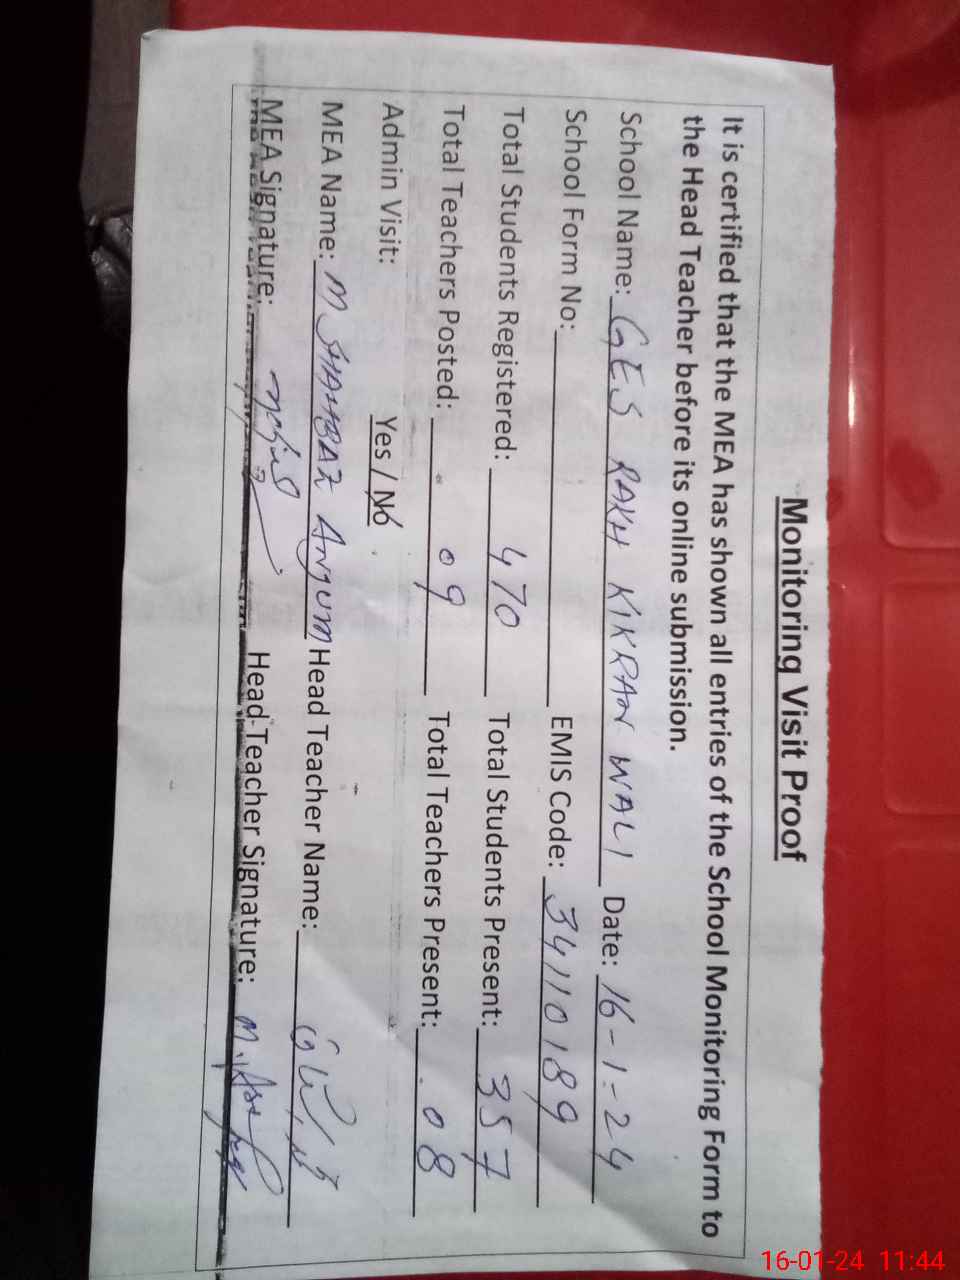 Monitoring Visit Proof
It is certified that the MEA has shown all entries of the School Monitoring Form to
the Head Teacher before its online submission.
School Name: GES RAKH KIKRAN WALI Date: 16-1-24
School Form No: EMIS Code: 34110189
Total Students Registered: 470 Total Students Present: 357
Total Teachers Posted: 09 Total Teachers Present: 08
Admin Visit: Yes / No
MEA Name: M SHAHBAZ ANJUM Head Teacher Name:
MEA Signature: Head-Teacher Signature:
16-01-24 11:44